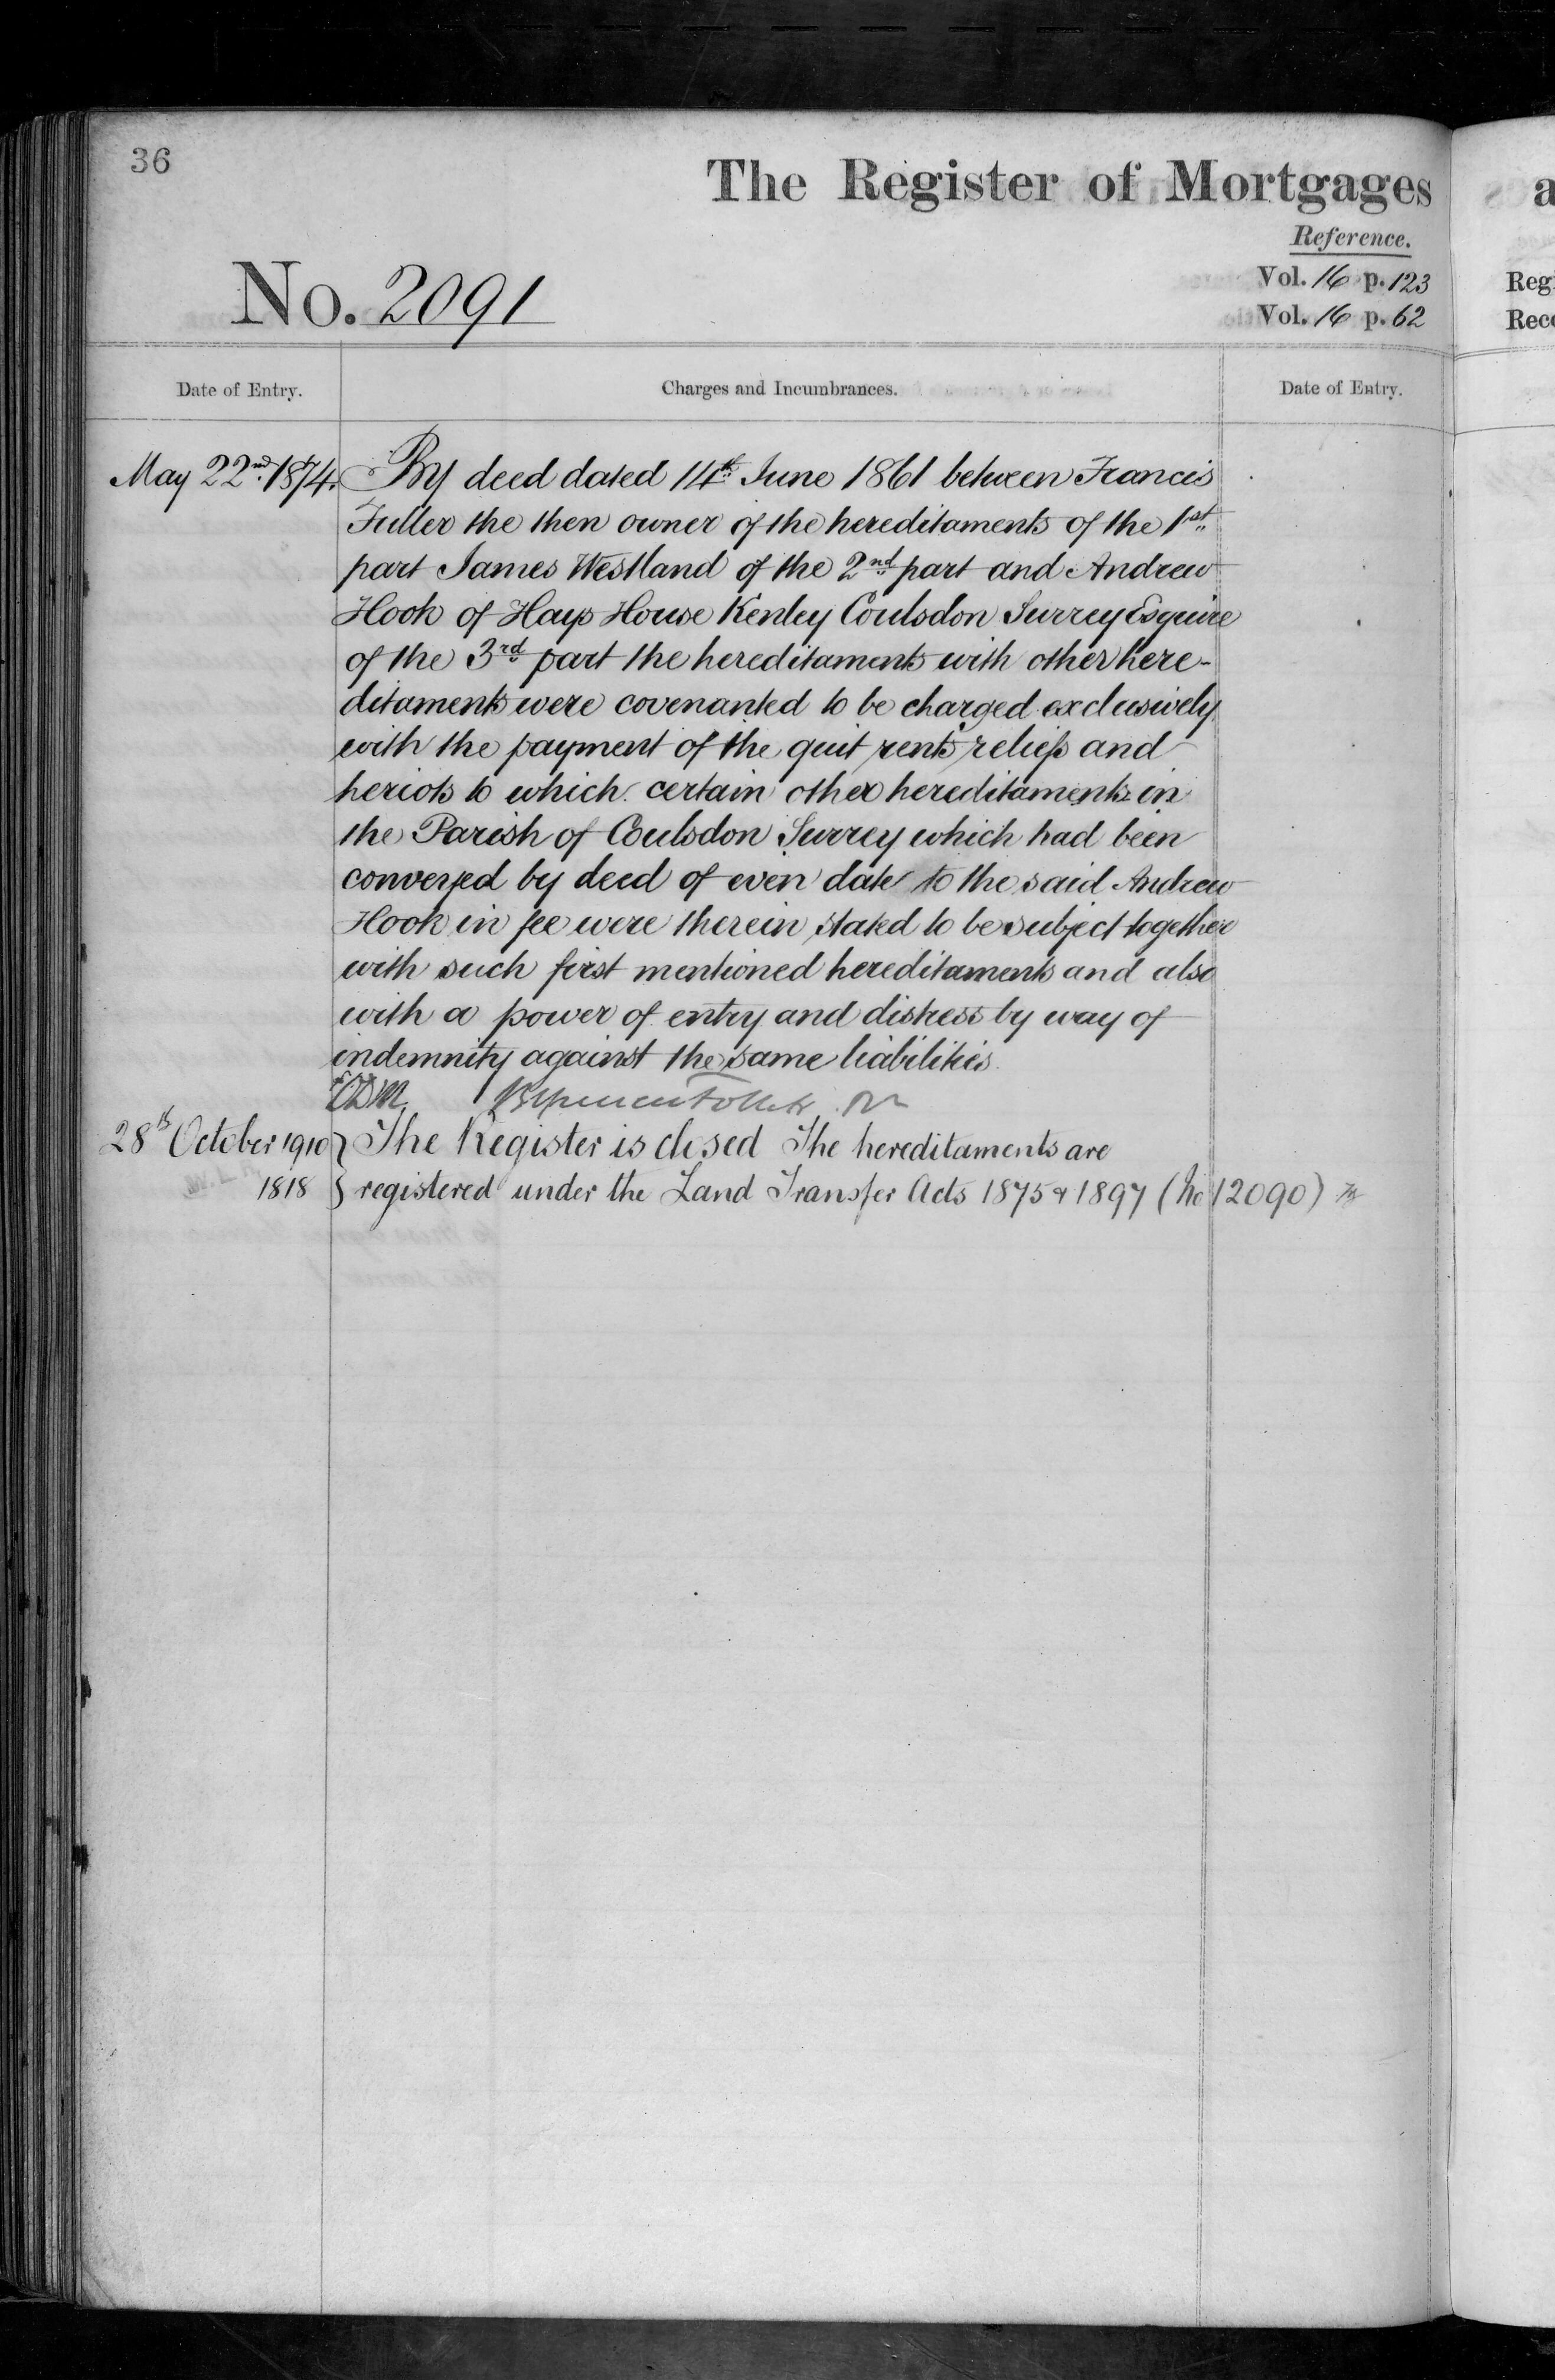 36
The Register of Mortgages
Reference.
No. 2091
Vol. 16 p. 123
Vol. 16 p. 62
Reg
Rec
Date of Entry.
Charges and Incumbrances.
Date of Entry.
May 22nd 1874. By deed dated 14th June 1861 between Francis
Fuller the then owner of the hereditaments of the 1st
part James Westland of the 2nd part and Andrew
Hook of Hays House Kenley Coulsdon Surrey Esquire
of the 3rd part the hereditaments with other here-
ditaments were covenanted to be charged exclusively
with the payment of the quit rents reliefs and
heriots to which certain other hereditaments in
the Parish of Coulsdon Surrey which had been
conveyed by deed of even date to the said Andrew
Hook in fee were therein stated to be subject together
with such first mentioned hereditaments and also
with a power of entry and distress by way of
indemnity against the same liabilities.
28th October 1910 } The Register is closed The hereditaments are
1818 } registered under the Land Transfer Acts 1875 & 1897 (No 12090)